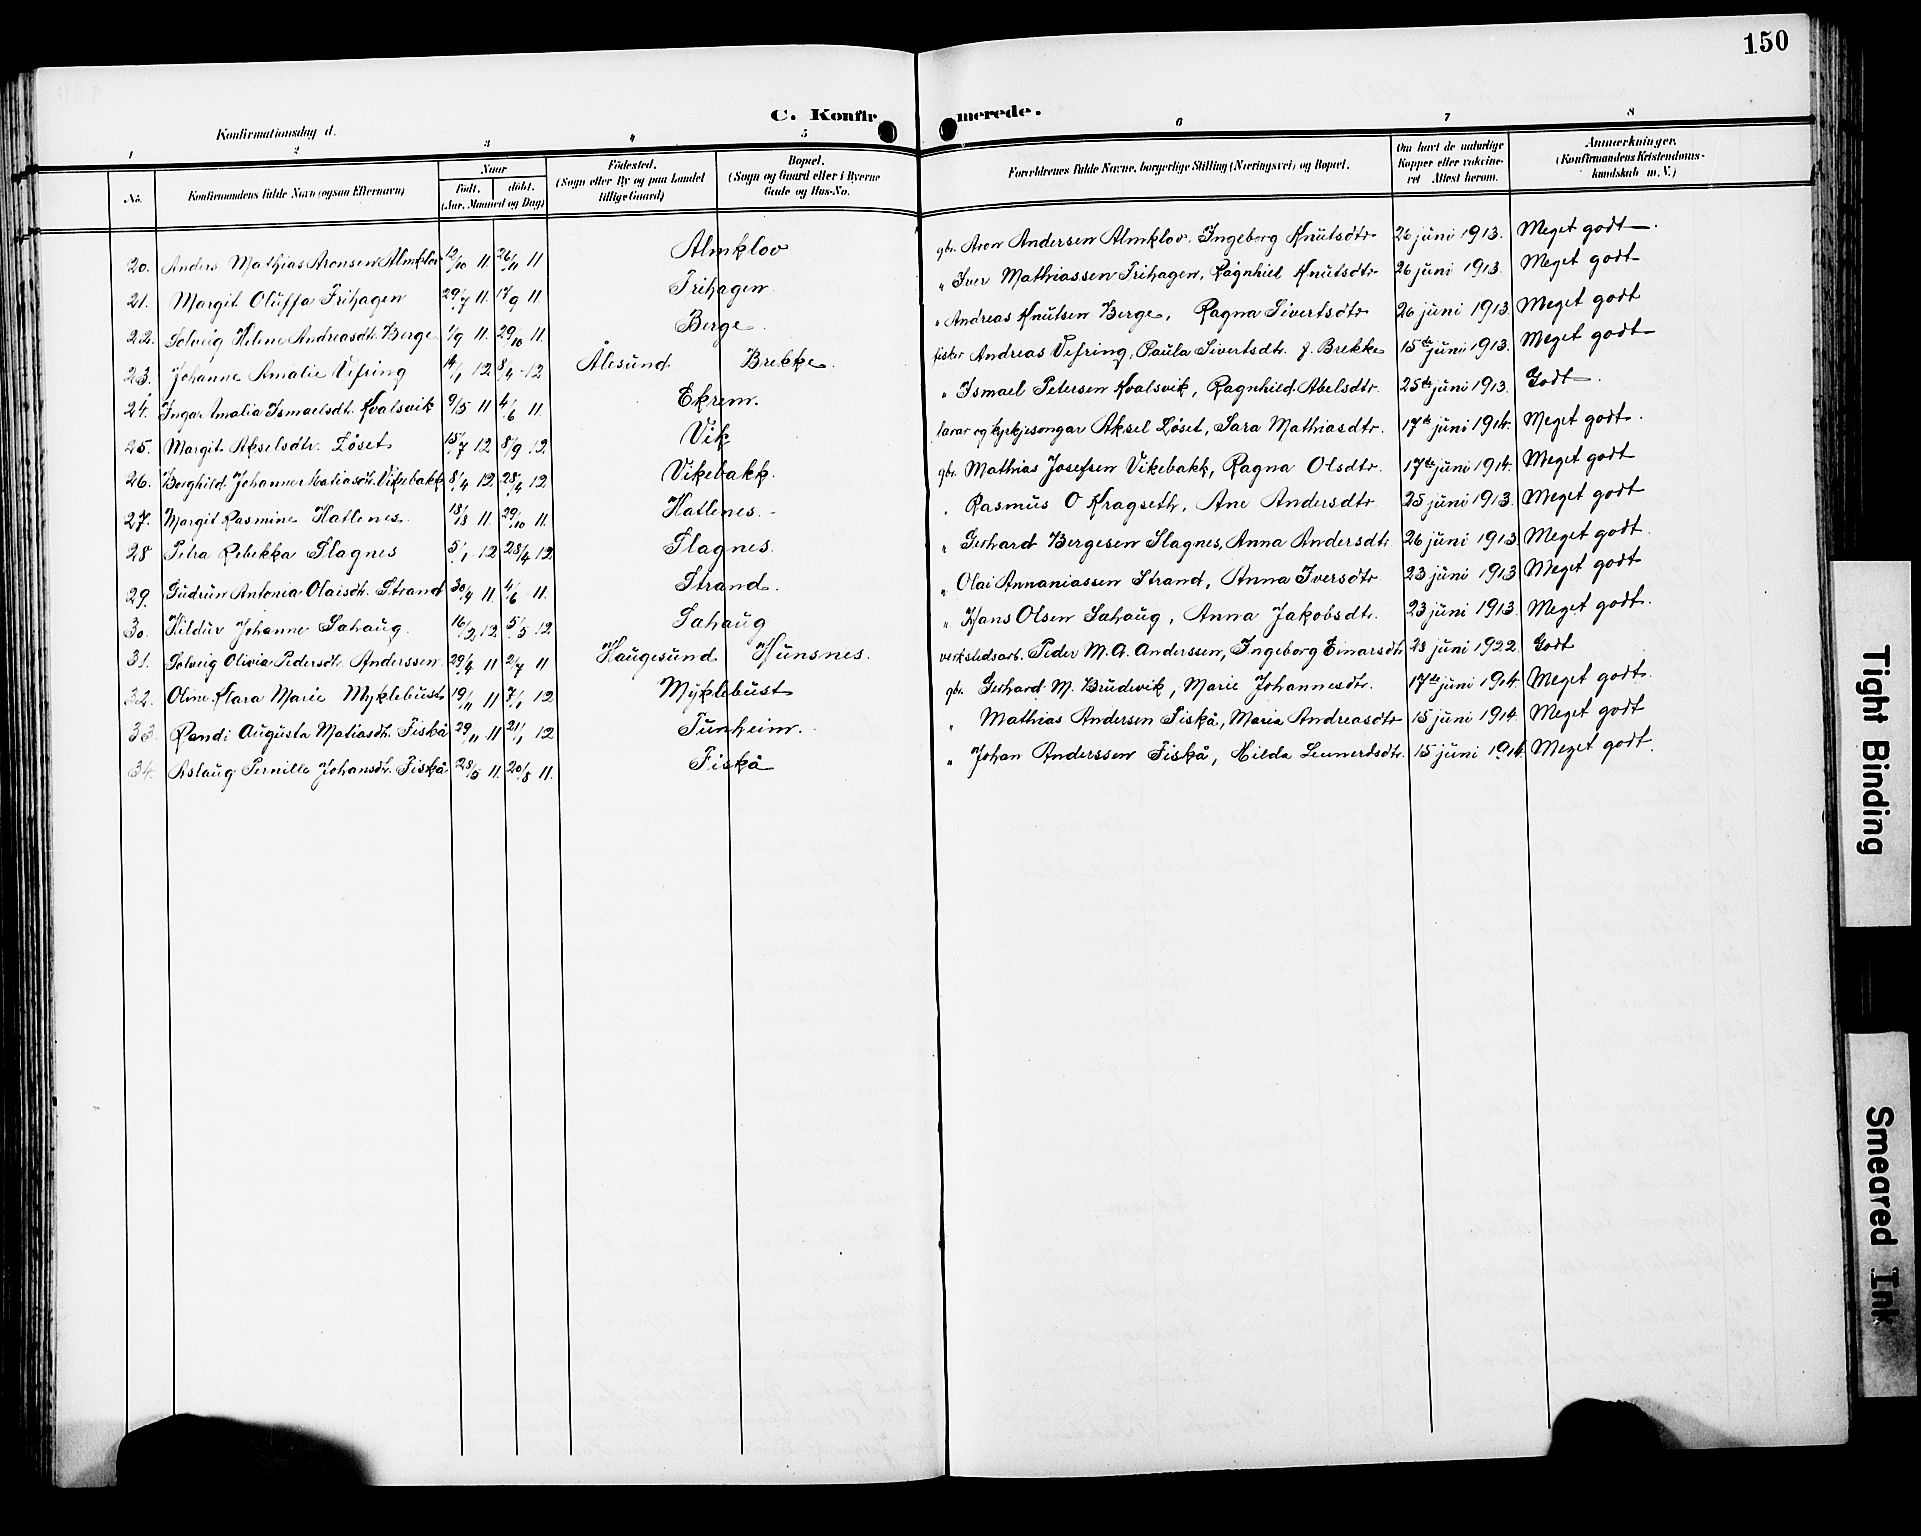 150
C. Konfirmerede.
Konfirmationsdag d.
1 2 3 4 5 6 7 8
No. Konfirmandens fulde Navn (ogsaa Efternavn) Naar født. døbt. (Aar, Maaned og Dag) Fødested. (Sogn eller By og paa Landet tillige Gaard) Bopæl. (Sogn og Gaard eller i Byerne Gade og Hus-No. Forældrenes fulde Navne, borgerlige Stilling (Næringsvei) og Bopæl. Om havt de naturlige Kopper eller vaccineret Attest herom. Anmerkninger. (Konfirmandens Kristendomskundskab m. V.)
20. Anders Mathias Aronsen Almklov 12/10 11. 26/11 11 Almklov gbr. Aron Andersen Almklov, Ingeborg Knutsdtr 26 juni 1913. Meget godt.
21. Margit Oluffa Frihagen 29/7 11. 17/9 11. Frihagen " Iver Mathiassen Frihagen, Ragnhild Knutsdtr 26 juni 1913. Meget godt
22. Solveig Helene Andreasdt. Berge 1/9 11. 29/10 11. Berge " Andreas Knutsen Berge, Ragna Sivertsdtr 26 juni 1913. Meget godt
23. Johanne Amalie Vefring 14/1 12 8/4 12 Ålesund Brekke. fisker Andreas Vefring, Paula Sivertsdt. f. Brekke 15de juni 1913. Meget godt
24. Inga Amalia Ismaelsdt. Kvalsvik 9/5 11 4/6 11. Ekrem. " Ismael Petersen Kvalsvik, Ragnhild Abelsdtr. 25de juni 1913. Godt.
25. Margit Akselsdtr. Løset 15/7 12 8/9 12. Vik lærar og kyrkjesongar Aksel Løset, Sara Mathiasdtr. 17de juni 1914. Meget godt.
26. Borghild Johanne Matiasdt. Vikebakk 8/4 12 28/4 12 Vikebakk. gbr. Mathias Josefsen Vikebakk, Ragna Olsdtr. 17de juni 1914. Meget godt
27. Margit Rasmine Hatlenes. 11. 29/10 11. Hatlenes. " Rasmus O Kragseth, Ane Andersdtr. 25 juni 1913. Meget godt
28 Petra Rebekka Slagnes 5/1 12 28/4 12 Slagnes. " Gerhard Bergesen Slagnes, Anna Andersdtr 26 juni 1913 Meget godt.
29. Gudrun Antonia Olaisdt. Strand 30/4 11. 4/6 11. Strand. " Olai Annaniassen Strand, Anna Iversdtr 23 juni 1913 Meget godt
30. Hildur Johanne Sahaug. 16/2 12. 5/5 12. Sahaug " Hans Olsen Sahaug, Anna Jakobsdt. 23 juni 1913. Meget godt.
31. Solveig Olivia Pedersdt. Anderssen 29/4 11 2/7 11 Haugesund Hunsnes. verkstedsarb. Peder M. A. Anderssen, Ingeborg Einarsdt. 23 juni 1922 Godt
32. Oline Klara Marie Myklebust 19/11 11 7/1 12 Myklebust gbr. Gerhard M. Brudevik, Marie Johannesdtr. 17de juni 1914. Meget godt.
33. Randi Augusta Matiasdt. Fiskå 29/11 11 21/1 12 Tunheim. " Mathias Andersen Fiskå, Maria Andreasdtr 15 juni 1914. Meget godt
34. Aslaug Pernille Johansdt. Fiskå 28/5 11. 20/8 11. Fiskå " Johan Anderssen Fiskå, Hilda Lennertsdtr. 15 juni 1914 Meget godt.
Tight Binding
Smeared Ink